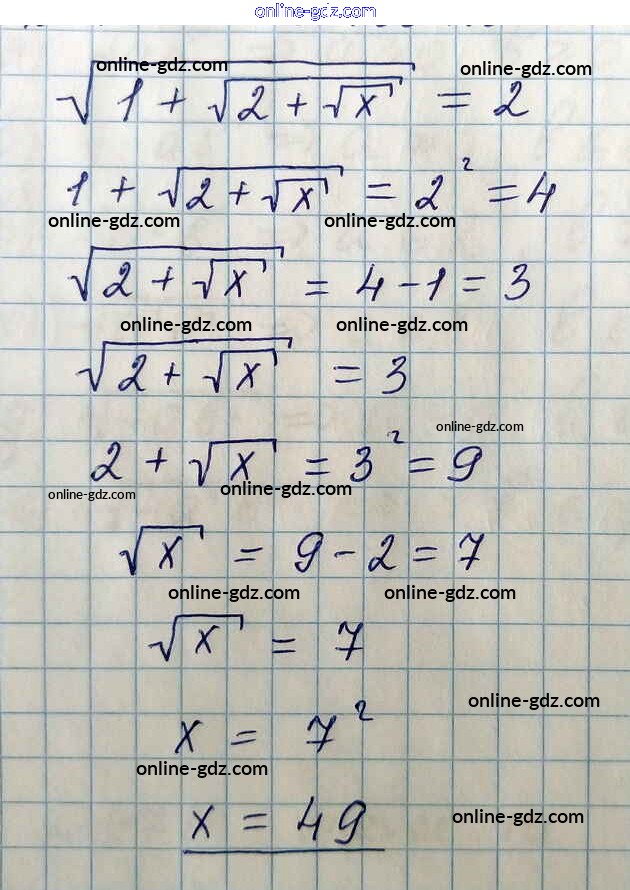 online-gdz.com
online-gdz.com online-gdz.com
√(1 + √(2 + √x)) = 2
1 + √(2 + √x) = 2² = 4
online-gdz.com online-gdz.com
√(2 + √x) = 4 - 1 = 3
online-gdz.com online-gdz.com
√(2 + √x) = 3
online-gdz.com
2 + √x = 3² = 9
online-gdz.com online-gdz.com
√x = 9 - 2 = 7
online-gdz.com online-gdz.com
√x = 7
online-gdz.com
x = 7²
online-gdz.com
x = 49
online-gdz.com